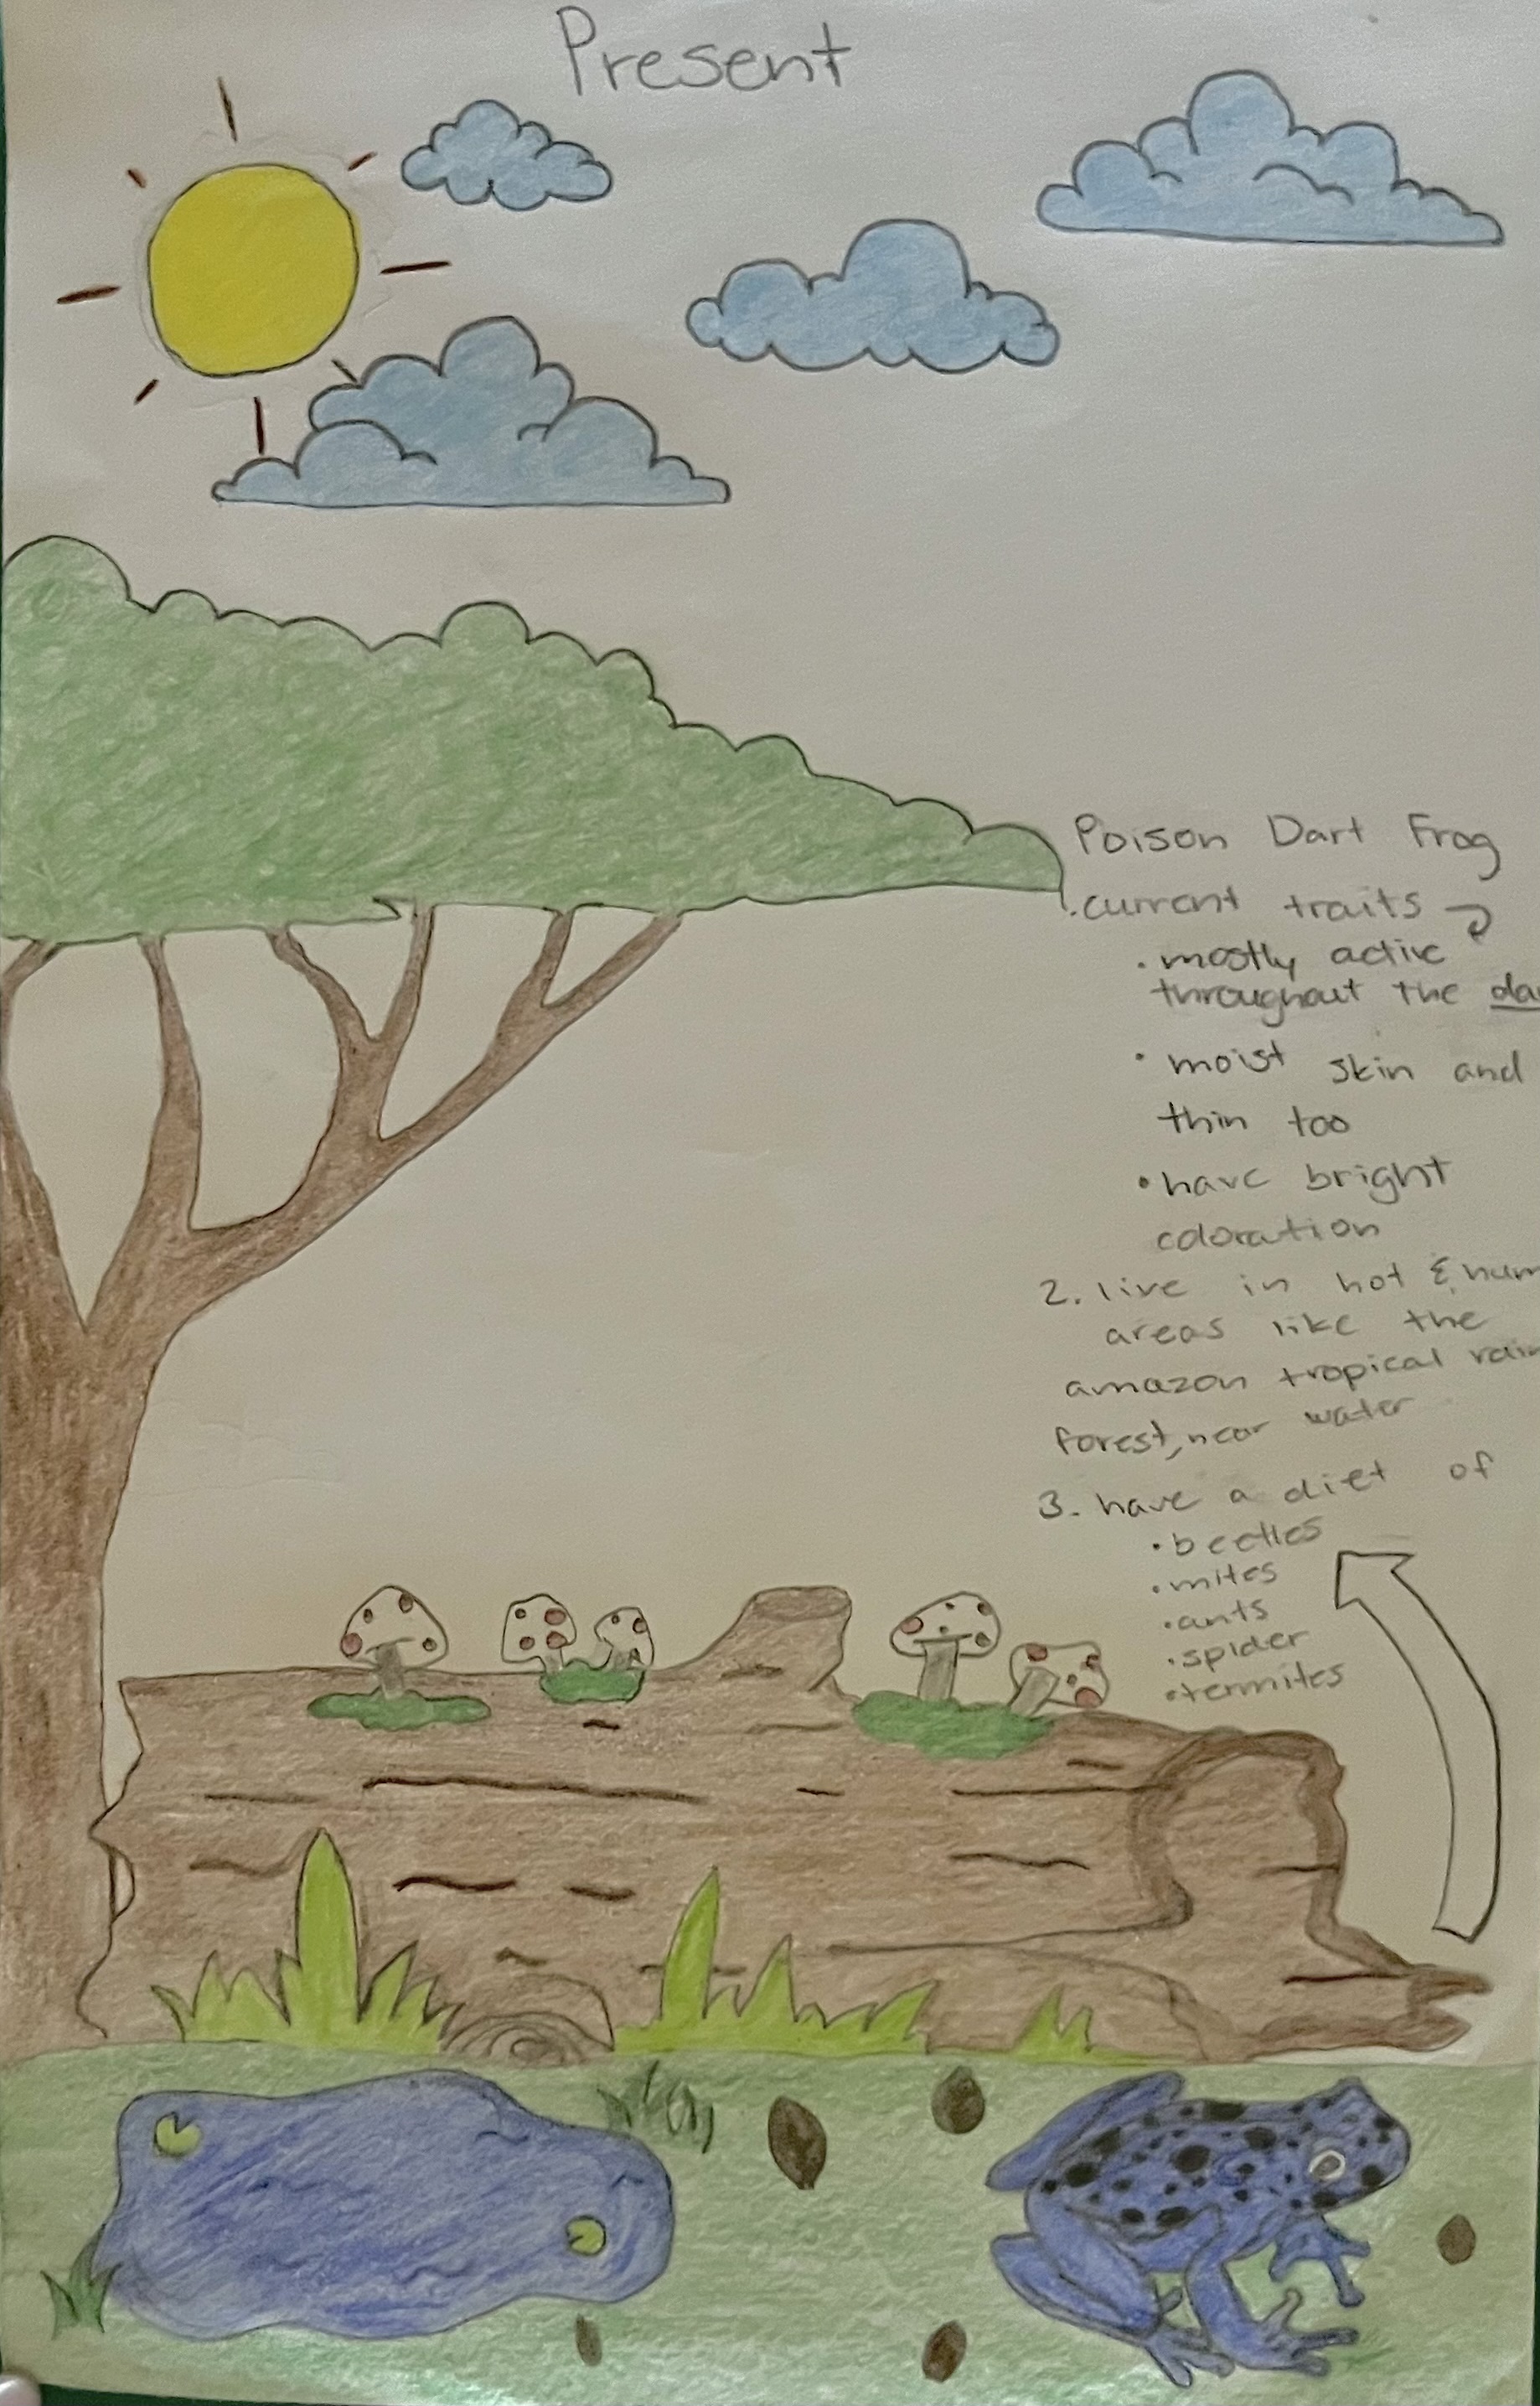 Present
Poison Dart Frog
.current traits
. mostly active
throughout the
• moist skin and
thin too
• have bright
coloration
2. live in hot &
areas like the
amazon tropical
forest, near water
3. have a diet of
• beetles
• mites
• ants
• spider
• termites